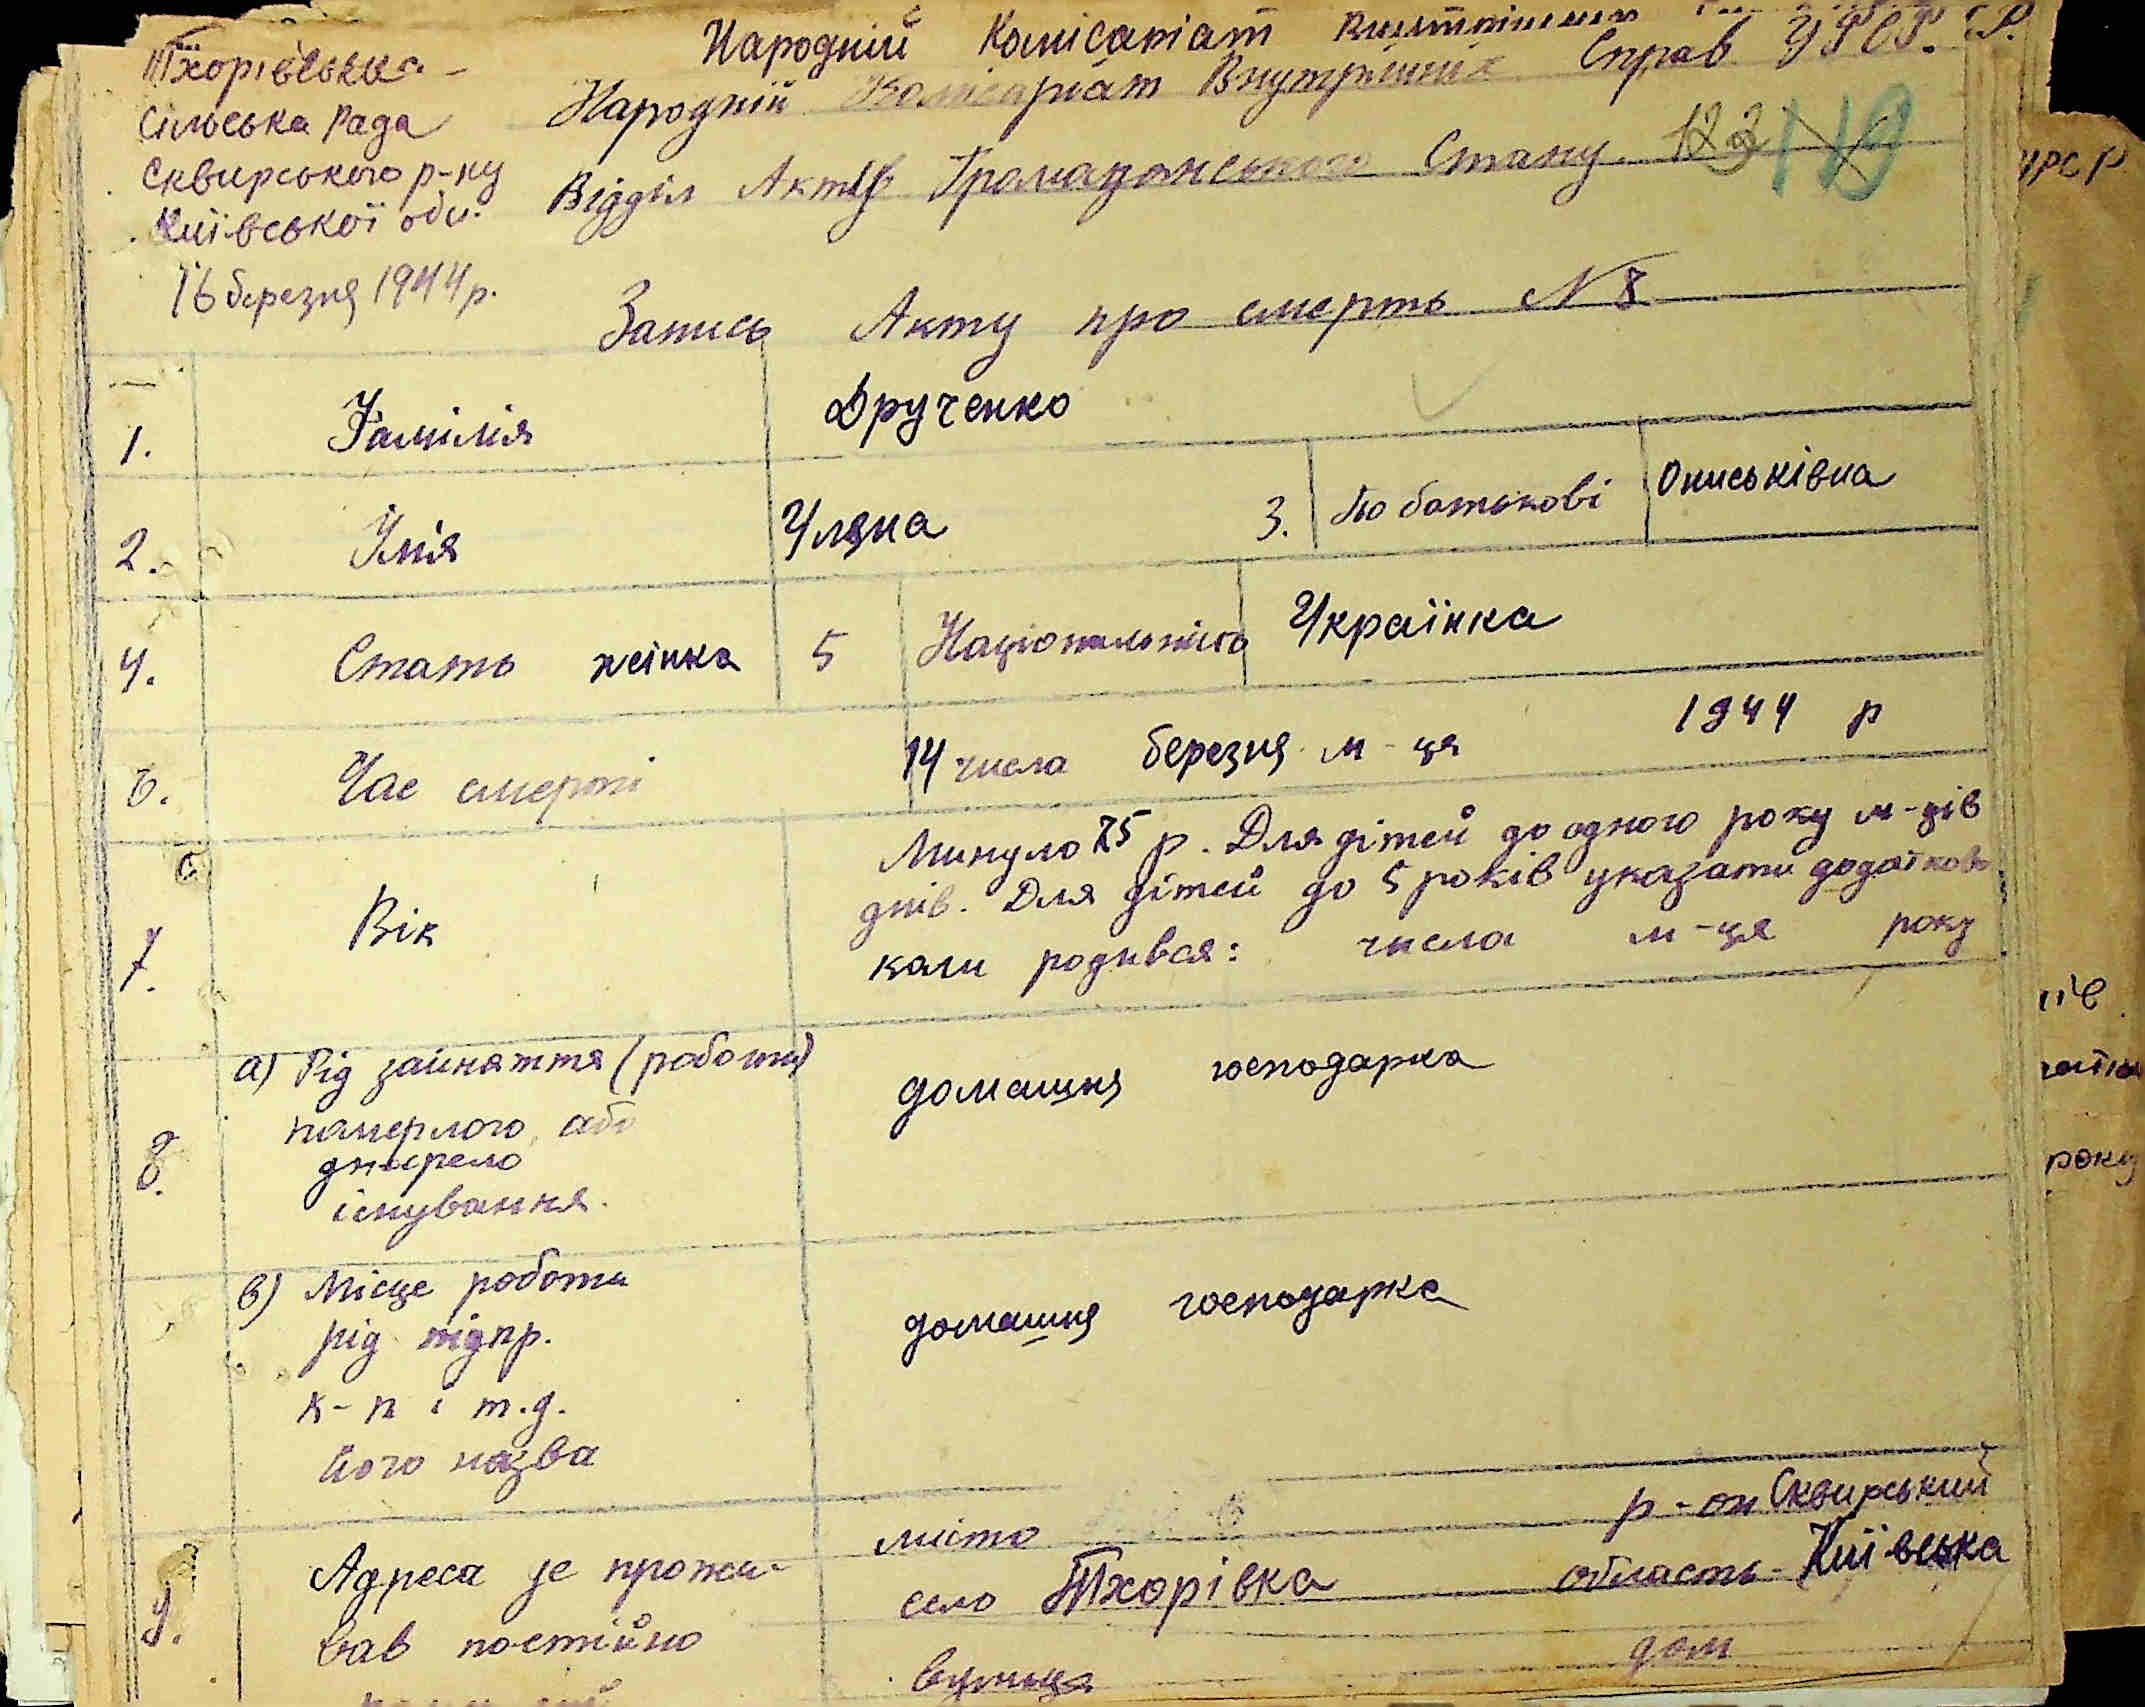 Народній Комісаріат
Тхорівська
Сільська Рада
Сквирського р-ну
Київської обл.
16 березня 1944 р.
Народній Комісаріат Внутрішніх Справ УРСР.
Відділ Актів Громадянського Стану. 122 119
Запись Акту про смерть N 8
1. Фамілія Друченко
2. Імія Уляна 3. По батькові Ониськівна
4. Стать жінка 5 Національність Українка
6. Час смерті 14 числа березня м-ця 1944 р
7. Вік Минуло 75 р. Для дітей до одного року м-ців
днів. Для дітей до 5 років указати додатково
коли родився: числа м-ця року
8. а) Рід зайняття (роботи)
памерлого або
джерело
існування.
домашня господарка
в) Місце роботи
рід підпр.
к-п і т.д.
його назва
домашня господарка
9. Адреса де прожи-
вав постійно
місто р-он Сквирський
село Тхорівка область - Київська
вулиця дом
УРСР
ів
року